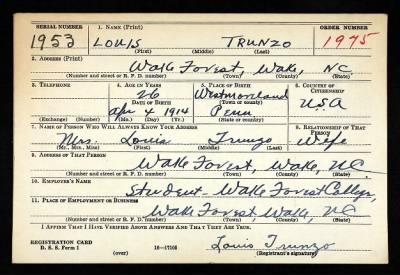 SERIAL NUMBER 1. NAME (Print) ORDER NUMBER
1953 LOUIS TRUNZO 1975
(First) (Middle) (Last)
2. ADDRESS (Print)
Wake Forest, Wake, N.C.
(Number and street or R. F. D. number) (Town) (County) (State)
3. TELEPHONE 4. AGE IN YEARS 5. PLACE OF BIRTH 6. COUNTRY OF CITIZENSHIP
26 Westmoreland
DATE OF BIRTH (Town or county) U.S.A
Apr 4 1914 Penn
(Exchange) (Number) (Mo.) (Day) (Yr.) (State or country)
7. NAME OF PERSON WHO WILL ALWAYS KNOW YOUR ADDRESS 8. RELATIONSHIP OF THAT PERSON
Mrs. Louis Trunzo Wife
(Mr., Mrs., Miss) (First) (Middle) (Last)
9. ADDRESS OF THAT PERSON
Wake Forest, Wake, N.C.
(Number and street or R. F. D. number) (Town) (County) (State)
10. EMPLOYER'S NAME
Student. Wake Forest College,
11. PLACE OF EMPLOYMENT OR BUSINESS
Wake Forest, Wake, N.C
(Number and street or R. F. D. number) (Town) (County) (State)
I AFFIRM THAT I HAVE VERIFIED ABOVE ANSWERS AND THAT THEY ARE TRUE.
REGISTRATION CARD Louis Trunzo
D. S. S. Form 1 (over) 16—17105 (Registrant's signature)